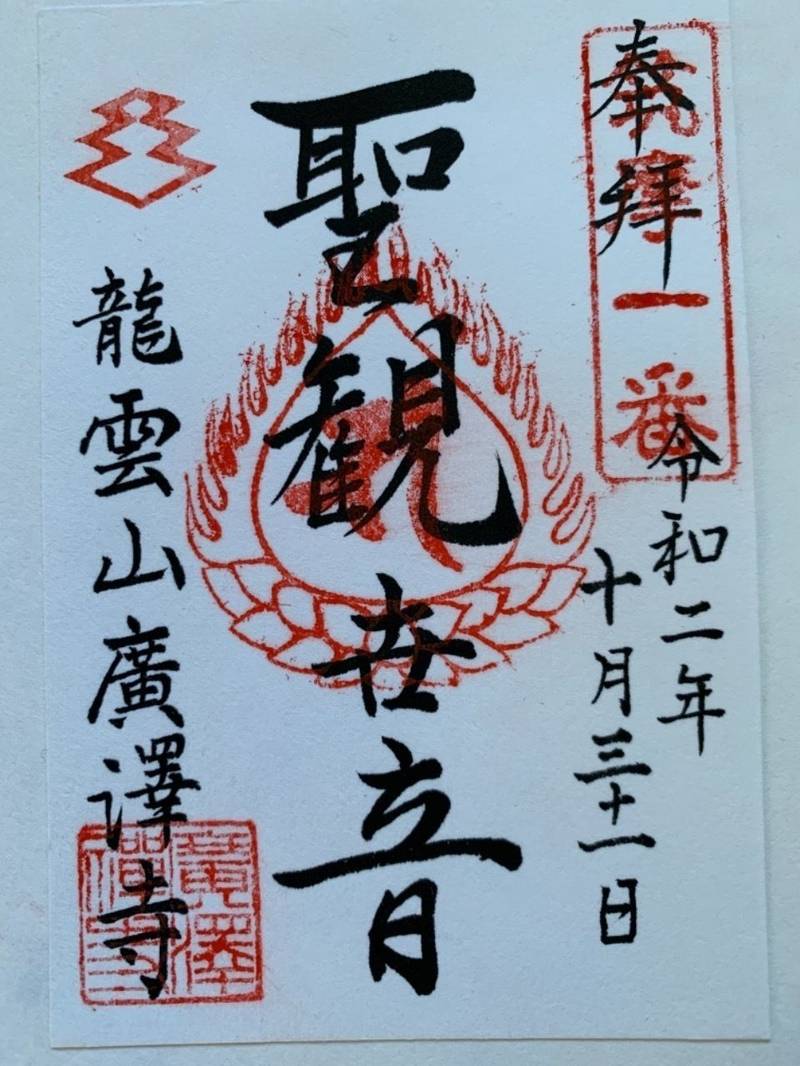 奉拝
一番
令和二年
十月三十一日
聖観世音
龍雲山廣澤寺
廣澤
禅寺